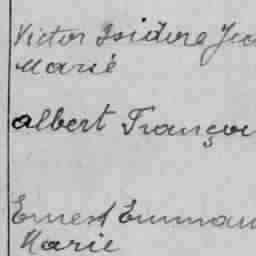 Victor Isidore Jea
Marie
Albert Françoi
Ernest Emmanu
Marie